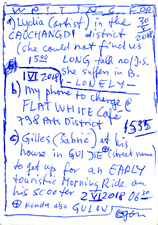 WRITING FOR
a) Lydia (artist) in the 30
CAOCHANGDI district 2018
(she could not find us
1500 LONG talk no/J.S.
she suffers in B.
1 VI 2018 - LONELY -
b) my phone to charge @
FLAT WHITE Café
798 Art District
1535
c) Gilles (Sabrié) at his
house in GUI JIE (street name
to get up for an EARLY
touristic Morning Ride on
his scooter 2 VI 2018 0630
Kinda also GULOU